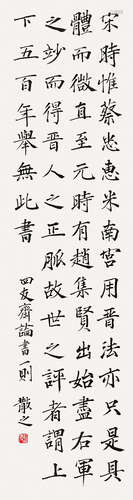 宋時惟蔡忠惠米南宮用晉法亦只是具
體而微直至元時有趙集賢出始盡右軍
之妙而得晉人之正脈故世之評者謂上
下五百年舉無此書
四友齋論書一則 散之